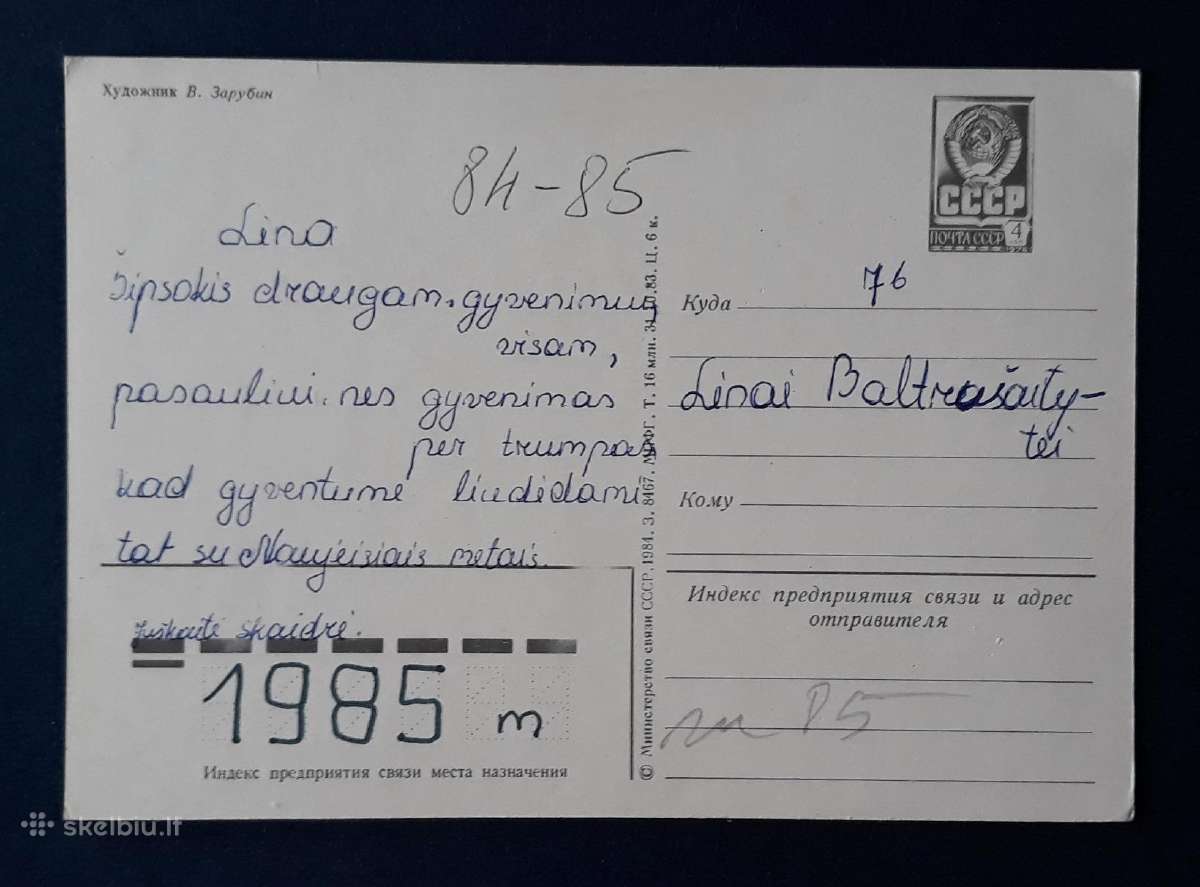 Художник В. Зарубин
84-85
Lina
Šipsokis draugam, gyvenimui,
visam,
pasauliui, nes gyvenimas
per trumpas
kad gyventume liudidami
tat su Naujeisiais metais.
skaidrė.
1985 m
Индекс предприятия связи места назначения
© Министерство связи СССР. 1984. З. 8467. Т. 16 млн. Ц. 6 к.
СССР
ПОЧТА СССР 4
76
Куда
Linai Baltrošaity-
tei
Кому
Индекс предприятия связи и адрес
отправителя
85
skelbiu.lt